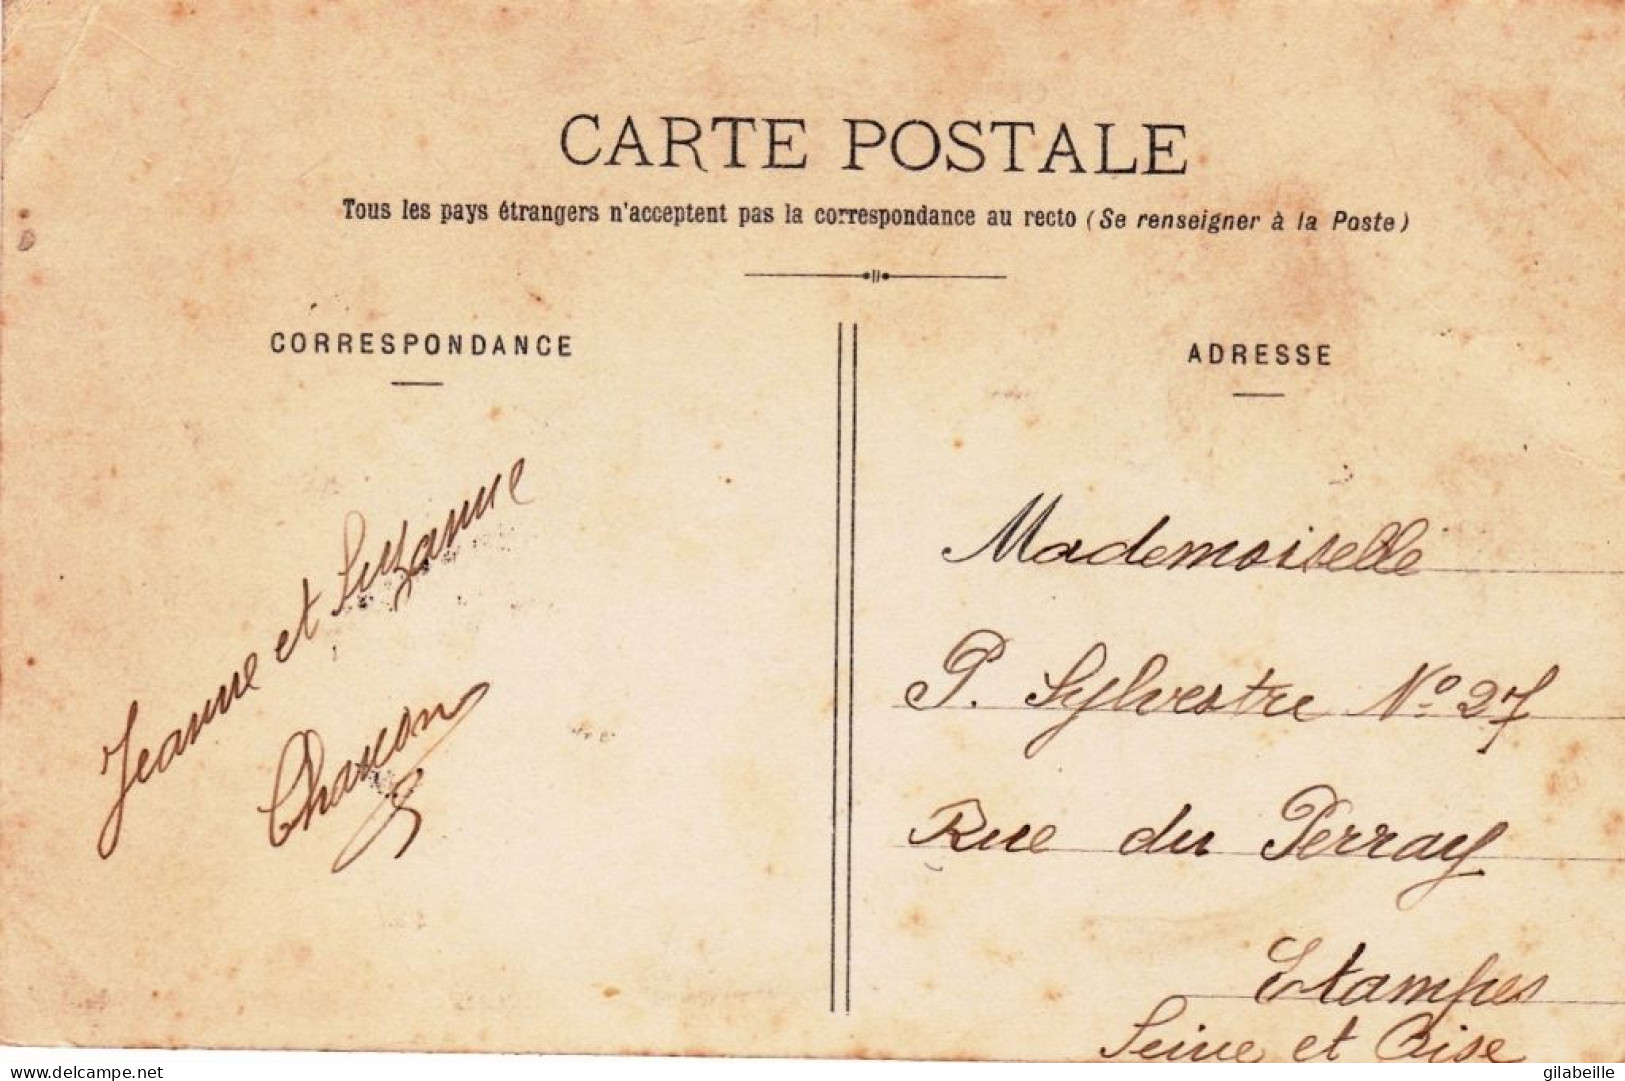 CARTE POSTALE
Tous les pays étrangers n'acceptent pas la correspondance au recto (Se renseigner à la Poste)
CORRESPONDANCE
Jeanne et Suzanne
ADRESSE
Mademoiselle
P. Sylvestre N° 27
Rue du Perray
Etampes
Seine et Oise
delcampe.net
gilabeille